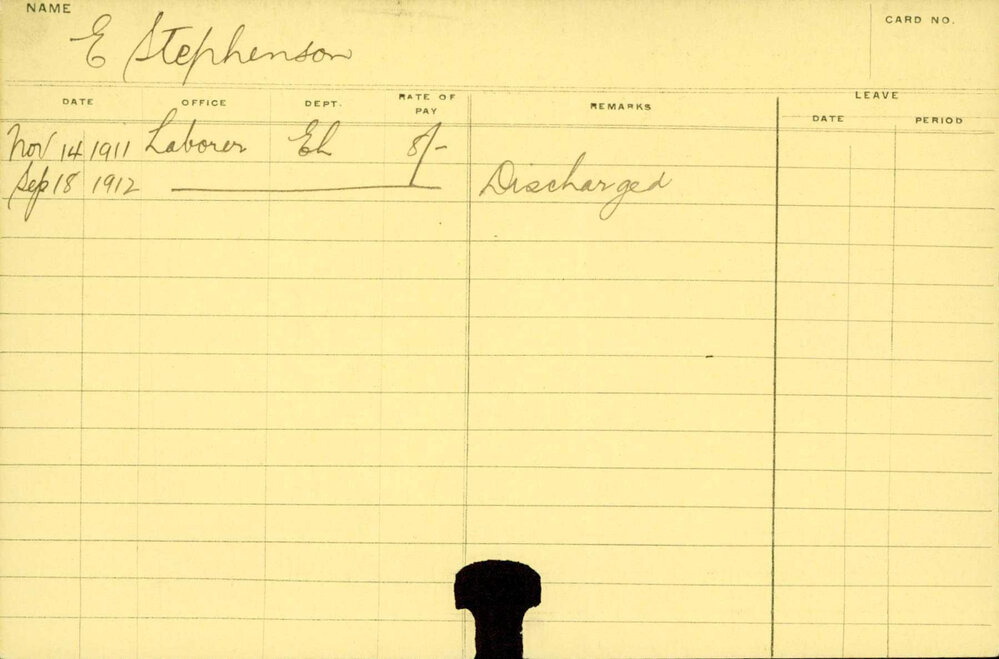 NAME
E Stephenson
CARD NO.
DATE OFFICE DEPT. RATE OF PAY REMARKS LEAVE
DATE PERIOD
Nov 14 1911 Laborer El 8/-
Sep 18 1912 Discharged